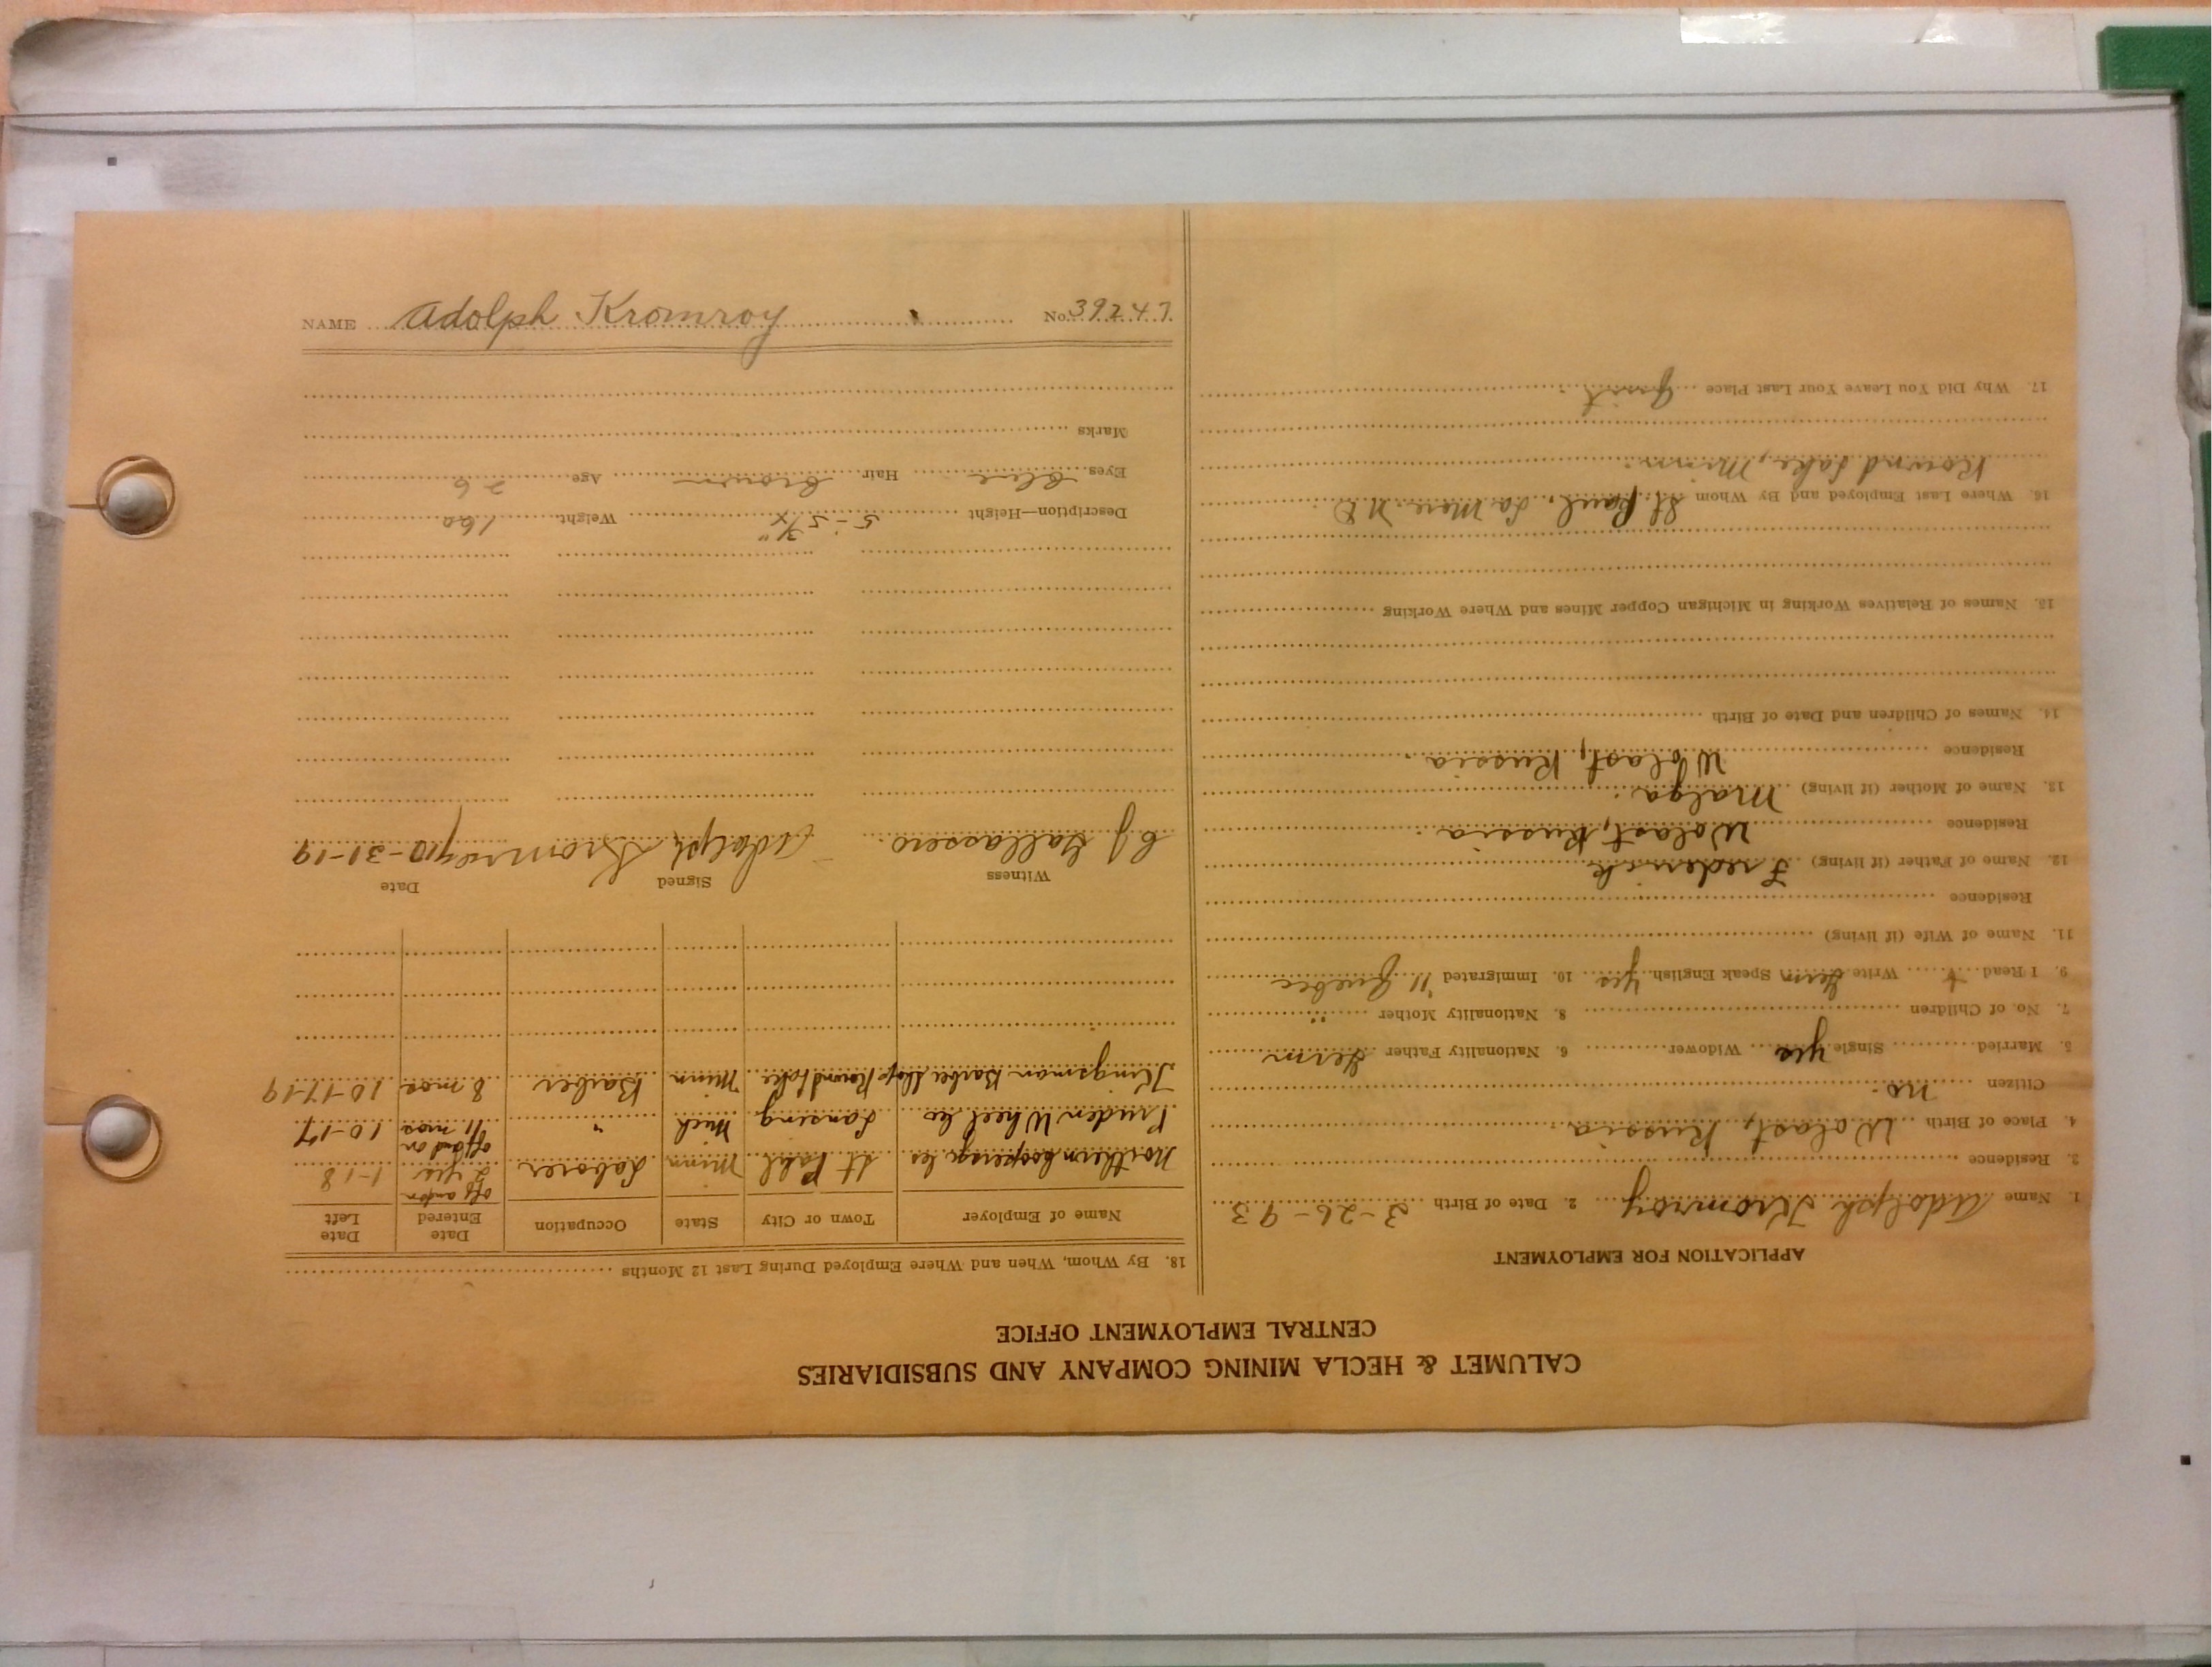 CALUMET & HECLA MINING COMPANY AND SUBSIDIARIES
CENTRAL EMPLOYMENT OFFICE
APPLICATION FOR EMPLOYMENT
1. Name Adolph Kromroy 2. Date of Birth 3-26-93
3. Residence
4. Place of Birth Wolast, Russia
Citizen no.
5. Married Single yes Widower 6. Nationality Father Germ
7. No. of Children 8. Nationality Mother "
9. I Read + Write Germ Speak English yes 10. Immigrated '11 Quebec
11. Name of Wife (if living)
Residence
12. Name of Father (if living) Frederick
Residence Wolast, Russia
13. Name of Mother (if living) Malga.
Residence Wolast, Russia.
14. Names of Children and Date of Birth
15. Names of Relatives Working in Michigan Copper Mines and Where Working
16. Where Last Employed and By Whom St Paul, La More. N.D.
Round Lake, Minn.
17. Why Did You Leave Your Last Place Quit.
18. By Whom, When and Where Employed During Last 12 Months
Name of Employer Town or City State Occupation Date Entered Date Left
Northern Cooperage Co St Paul Minn Laborer off and on 2 yrs 1-18
Pruden Wheel Co Lansing Mich " off and on 11 mos 10-17
Kingsman Barber Shop Round Lake. Minn Barber 8 mos 10-17-19
Witness Signed Date
C J Gallassero. Adolph Kromroy 10-31-19
Description—Height 5-5¾" Weight 160
Eyes Blue Hair Brown Age 26
Marks
NAME Adolph Kromroy No. 39247